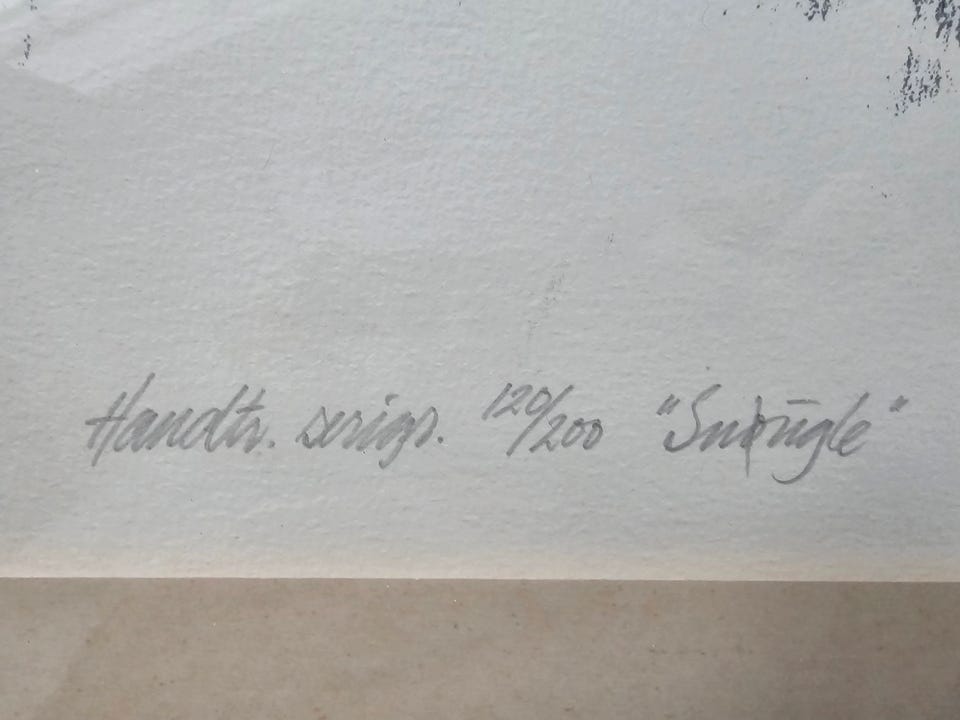 Handtr. serigr. 120/200 "Snøugle"